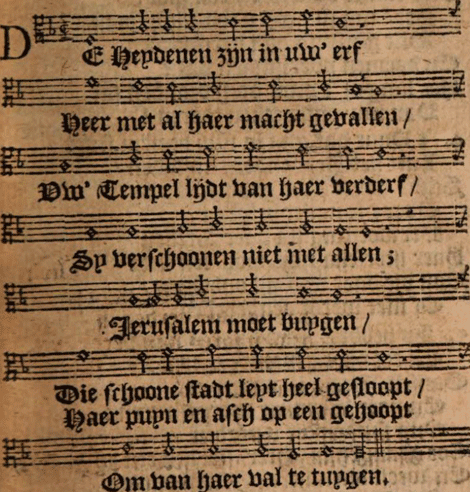 DE Heydenen zijn in uw' erf
Heer met al haer macht gevallen /
Uw' Tempel lijdt van haer verderf /
Sy verschoonen niet met allen ;
Jerusalem moet buygen /
Die schoone stadt leyt heel gesloopt /
Haer puyn en asch op een gehoopt
Om van haer val te tuygen.